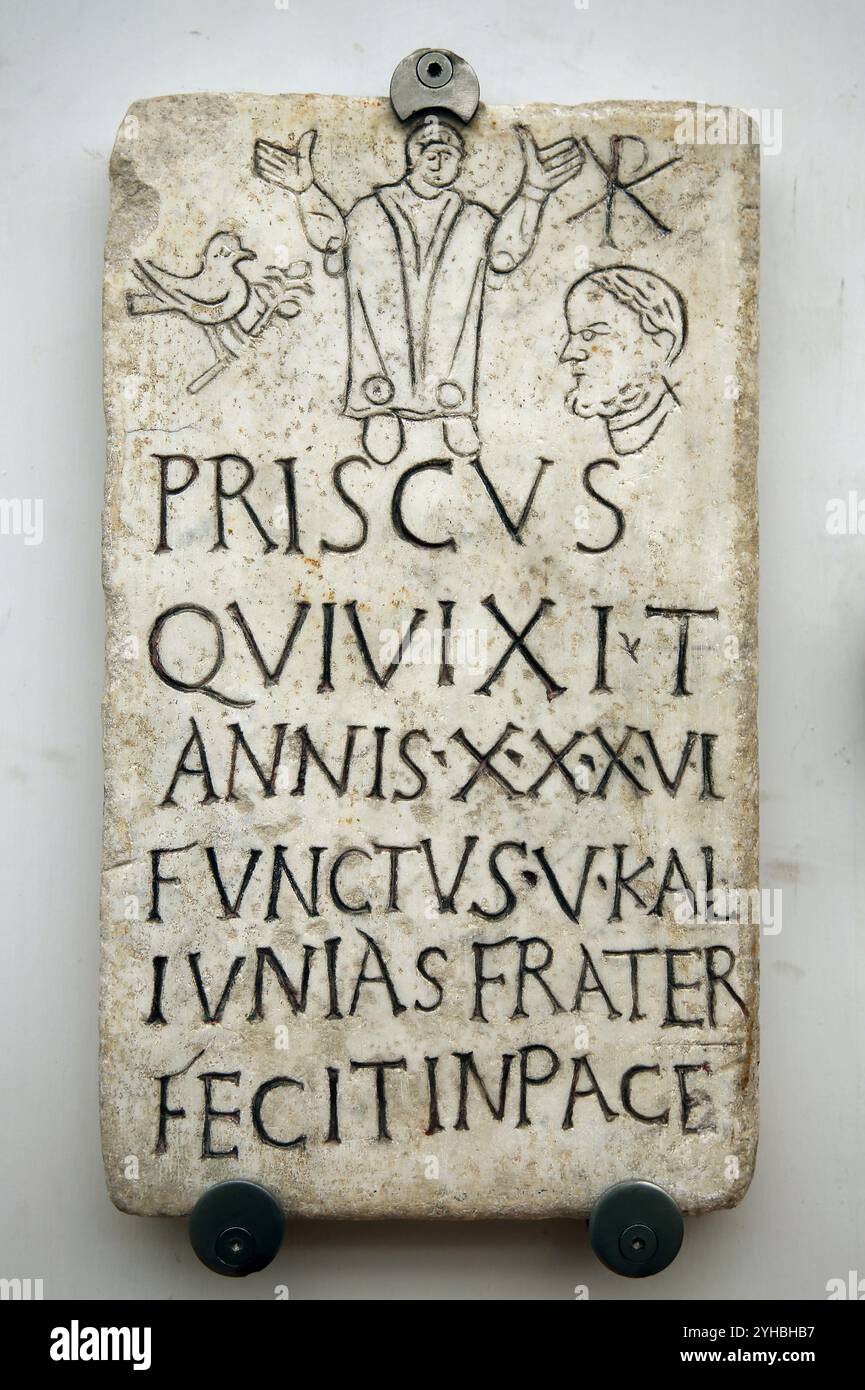 PRISCVS
QVIVIXI T
ANNIS·X·X·X·VI
FVNCTVS·V·KAL
IVNIAS FRATER
FECIT IN PACE
alamy
Image ID: 2YHBHB7
www.alamy.com